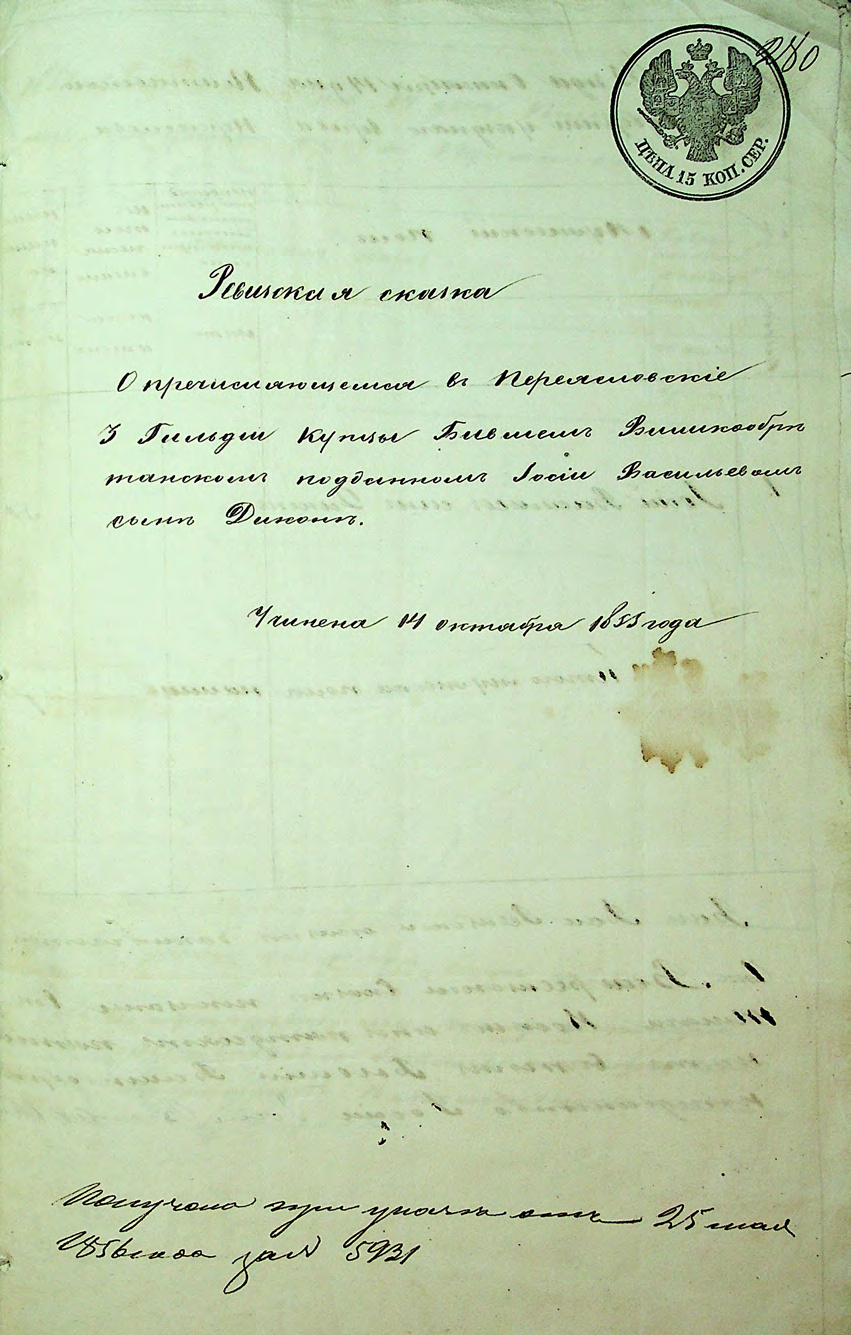 280
ЦѢНА 15 КОП. СЕР.
Ревижская сказка
О пречисляющемся въ Переяславскіе
3 Гильдіи купцы Бывшемъ Великобри
танскомъ подданномъ Іосіи Васильевомъ
сынѣ Диконѣ.
Учинена 14 октября 1855 года
Получено при указѣ отъ 25 мая
1856 года за № 5931